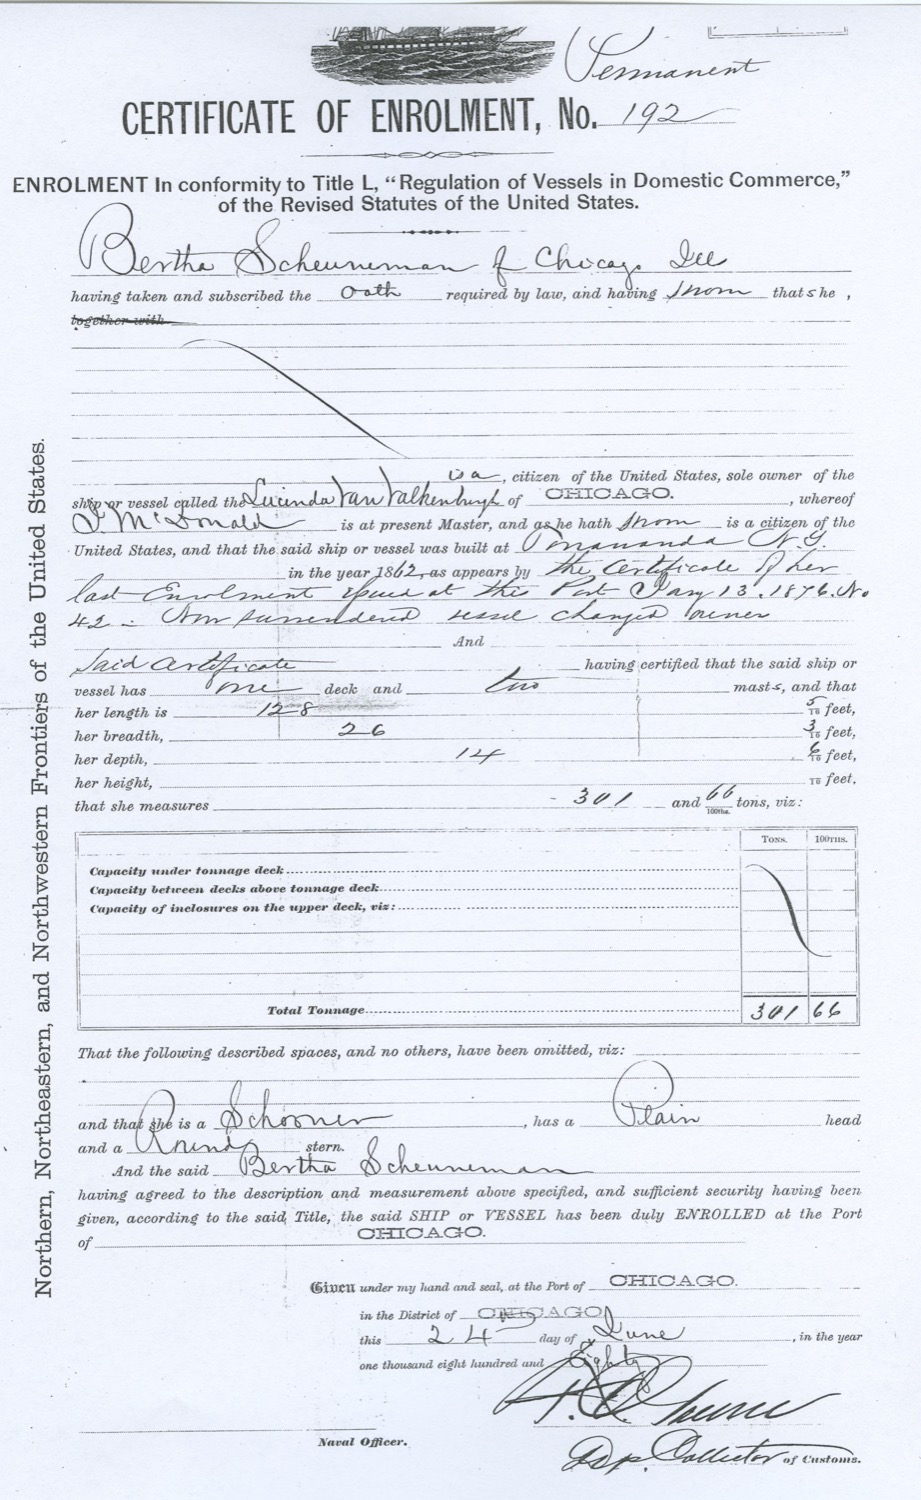 Permanent
CERTIFICATE OF ENROLMENT, No. 192
ENROLMENT In conformity to Title L, "Regulation of Vessels in Domestic Commerce,"
of the Revised Statutes of the United States.
Bertha Scheuneman of Chicago Ill
having taken and subscribed the Oath required by law, and having sworn that s he ,
together with
is a , citizen of the United States, sole owner of the
ship or vessel called the Lucinda Van Valkenburgh of CHICAGO. , whereof
McDonald is at present Master, and as he hath sworn is a citizen of the
United States, and that the said ship or vessel was built at Tonawanda N.Y.
in the year 1862, as appears by the Certificate of her
last Enrolment issued at this Port Jany 13. 1876. No
42 - Now surrendered vessel changed owner
And
Said Certificate having certified that the said ship or
vessel has one deck and two masts, and that
her length is 128 5/10 feet,
her breadth, 26 3/10 feet,
her depth, 14 6/10 feet,
her height, /10 feet.
that she measures 301 and 66/100ths. tons, viz:
TONS. 100THS.
Capacity under tonnage deck
Capacity between decks above tonnage deck
Capacity of inclosures on the upper deck, viz:
Total Tonnage 301 66
That the following described spaces, and no others, have been omitted, viz:
and that she is a Schooner , has a Plain head
and a Round stern.
And the said Bertha Scheuneman
having agreed to the description and measurement above specified, and sufficient security having been
given, according to the said Title, the said SHIP or VESSEL has been duly ENROLLED at the Port
of CHICAGO.
Given under my hand and seal, at the Port of CHICAGO.
in the District of CHICAGO
this 24 day of June , in the year
one thousand eight hundred and Eighty
Naval Officer.
Dep. Collector of Customs.
Northern, Northeastern, and Northwestern Frontiers of the United States.